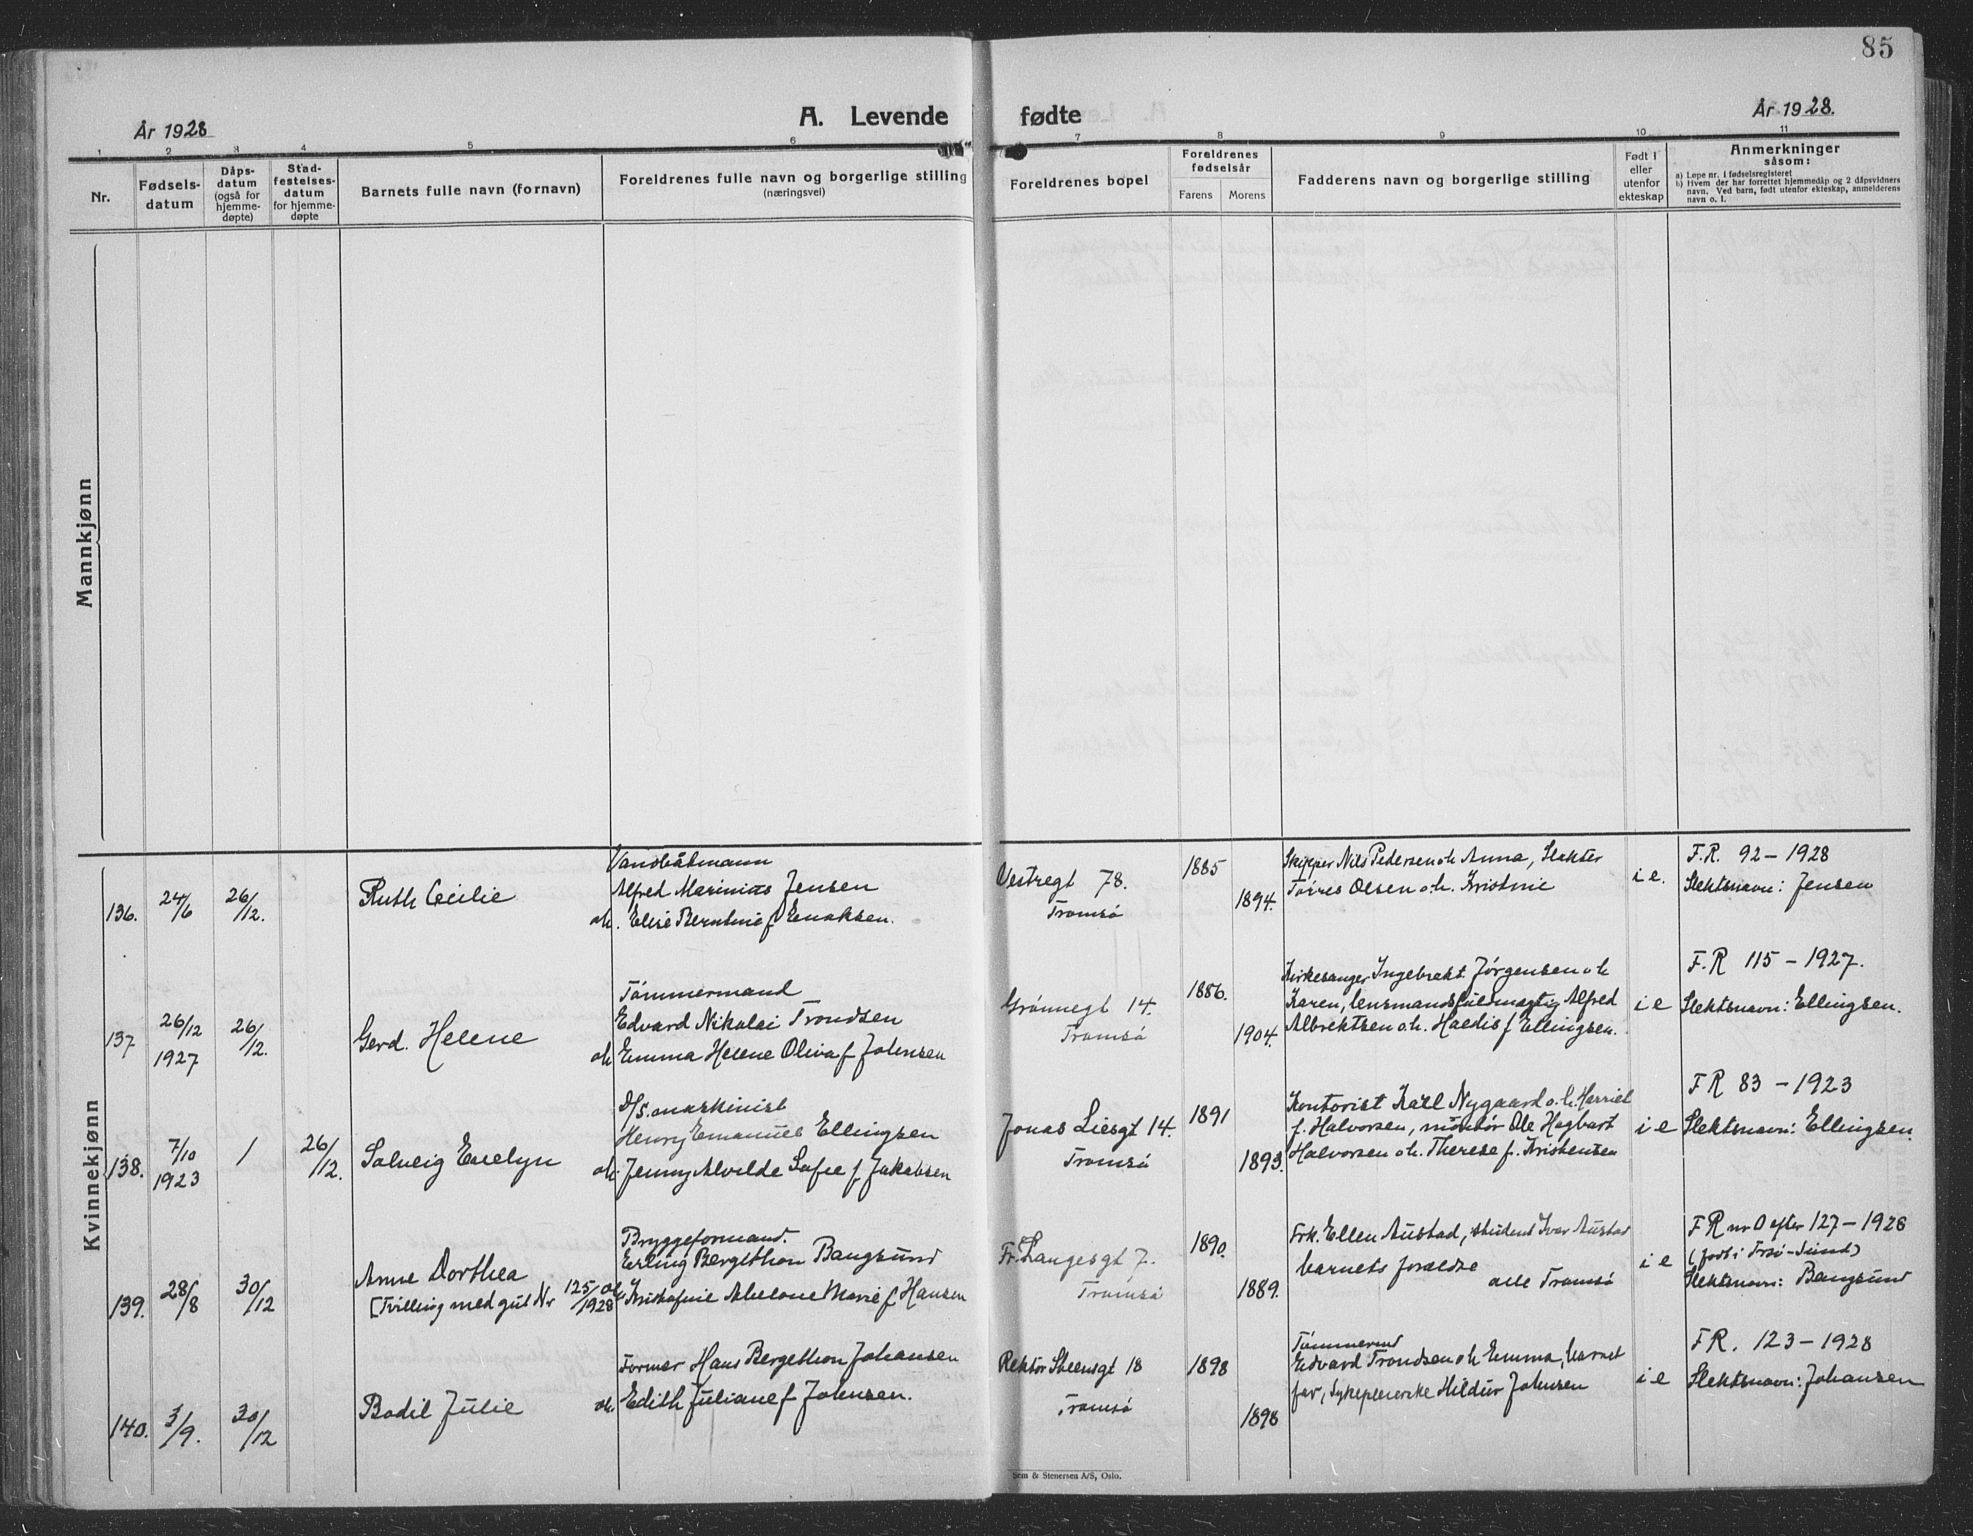 85
År 1928
A. Levende fødte
År 1928.
1 2 3 4 5 6 7 8 9 10 11
Nr.
Fødsels-
datum
Dåps-
datum
(også for
hjemme-
døpte)
Stad-
festelses-
datum
for hjemme-
døpte
Barnets fulle navn (fornavn)
Foreldrenes fulle navn og borgerlige stilling
(næringsvei)
Foreldrenes bopel
Foreldrenes
fødselsår
Farens Morens
Fadderens navn og borgerlige stilling
Født i
eller
utenfor
ekteskap
Anmerkninger
såsom:
a) Løpe nr. i fødselsregisteret
b) Hvem der har forrettet hjemmedåp og 2 dåpsvidners
navn. Ved barn, født utenfor ekteskap, anmelderens
navn o. l.
Mannkjønn
Kvinnekjønn
136.
24/6
26/12.
Ruth Cecilie
Alfred Marinius Jensen
oh. Elise Berntine f Enoksen.
Vestregt 78.
Tromsö
1885
1894.
Skipper Nils Pedersen oh Anna, Slakter
Olsen o.h. Kristine
i e.
F.R. 92 – 1928
Slektsnavn: Jensen
137
26/12
1927
26/12.
Gerd. Helene
Tömmermand
Edvard Nikolai Trondsen
oh Emma Helene Oliva f Johnsen
Grönnegt 14.
Tromsö
1886.
1904.
Kirkesanger Ingebrekt Jørgensen o h
Karen, lensmandsfuldmægtig Alfred
Albrektsen o.h. Haldis f Ellingsen.
i e
F.R 115 – 1927.
Slektsnavn: Ellingsen.
138.
7/10
1923
/
26/12.
Solveig Evelyn
D/S. maskinist
Henry Emanuel Ellingsen
oh. Jenny Alvilde Sofie f Jakobsen
Jonas Liesgt 14.
Tromsö
1891
1893.
Kontorist Karl Nygaard o.h. Harriet
f. Halvorsen, montör Ole Hagbart
Halvorsen o h. Therese f. Kristensen
i e
F R 83 – 1923
Slektsnavn: Ellingsen.
139.
28/8
30/12
Anne Dorthea
[Tvilling med gut Nr 125/1928
Bryggeformand.
Erling Bergithon Bangsund
oh. Kristofine Abelone Marie f Hansen
Fr. Langesgt 7.
Tromsö
1890.
1889.
Frk. Ellen Austad, student Ivar Austad
barnets foreldre
alle Tromsö
i e
F R nr 0 efter 127 – 1928
(född i Trsö-Sund)
Slektsnavn: Bangsund
140.
3/9.
30/12
Bodil Julie
Former Hans Bergethon Johansen
oh. Edith Juliane f Johnsen.
Rektor Steensgt 18
Tromsö
1898
1898
Tömmermd
Edvard Trondsen o h Emma, barnet
far, Sykepleierske Hildur Johnsen
i e
F R. 123 – 1928
Slektsnavn: Johansen
Sem & Stenersen A/S, Oslo.